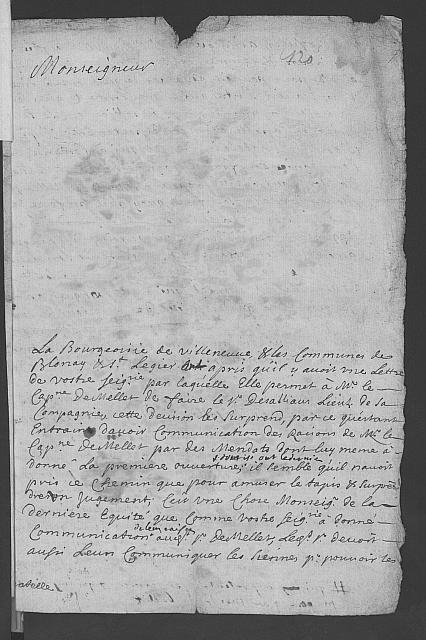 420
Monseigneur
La Bourgeoisie de Villeneuve, & les Communes de
Blonay & St. Legier apris qu'il y avoit une Lettre
de vostre Seigrie par laquelle Elle permet à Mr. le
Capne de Mellet de faire le Sr. Desalliaux Lieut. de sa
Compagnie, cette decision les Surprend, par ce qu'estant
Entrain d'avoir Communication des Raisons de Mr. le
Capne De Mellet par des Mendats dont luy meme à
donné La premiere ouverture, il semble qu'il n'avoit
pris ce Chemin que pour amuser le tapis & Surpren
dre Jugement, C'est Une Chose Monseigr. de la
derniere Equité que Comme vostre Seigrie à donné
Communication au Sr. De Mellet, Led. Sr. devoit
aussi Leur Communiquer les Siennes pr. pouvoir les